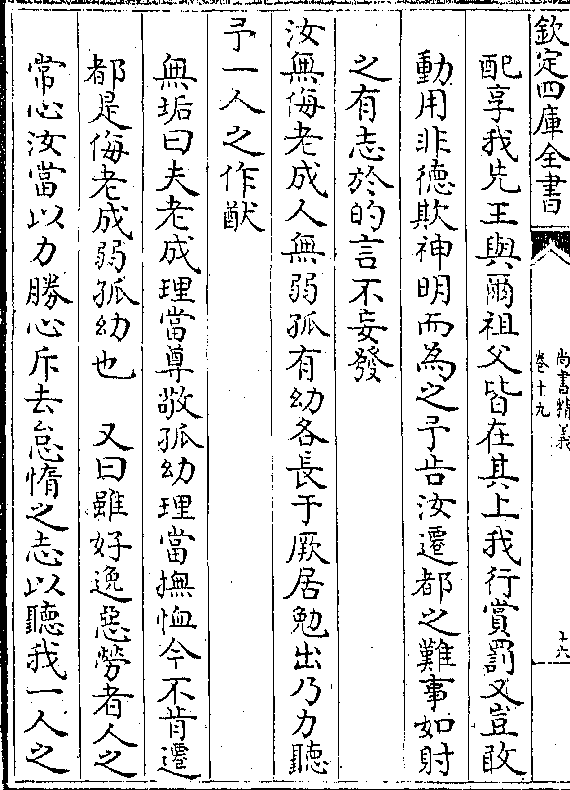 欽定四庫全書
尚書精義
卷十九
十六
配享我先王與爾祖父皆在其上我行賞罰又豈敢
動用非德欺神明而為之予告汝遷都之難事如射
之有志於的言不妄發
汝無侮老成人無弱孤有幼各長于厥居勉出乃力聽
予一人之作猷
無垢曰夫老成理當尊敬孤幼理當撫恤今不肯遷
都是侮老成弱孤幼也 又曰雖好逸惡勞者人之
常心汝當以力勝心斥去怠惰之志以聽我一人之